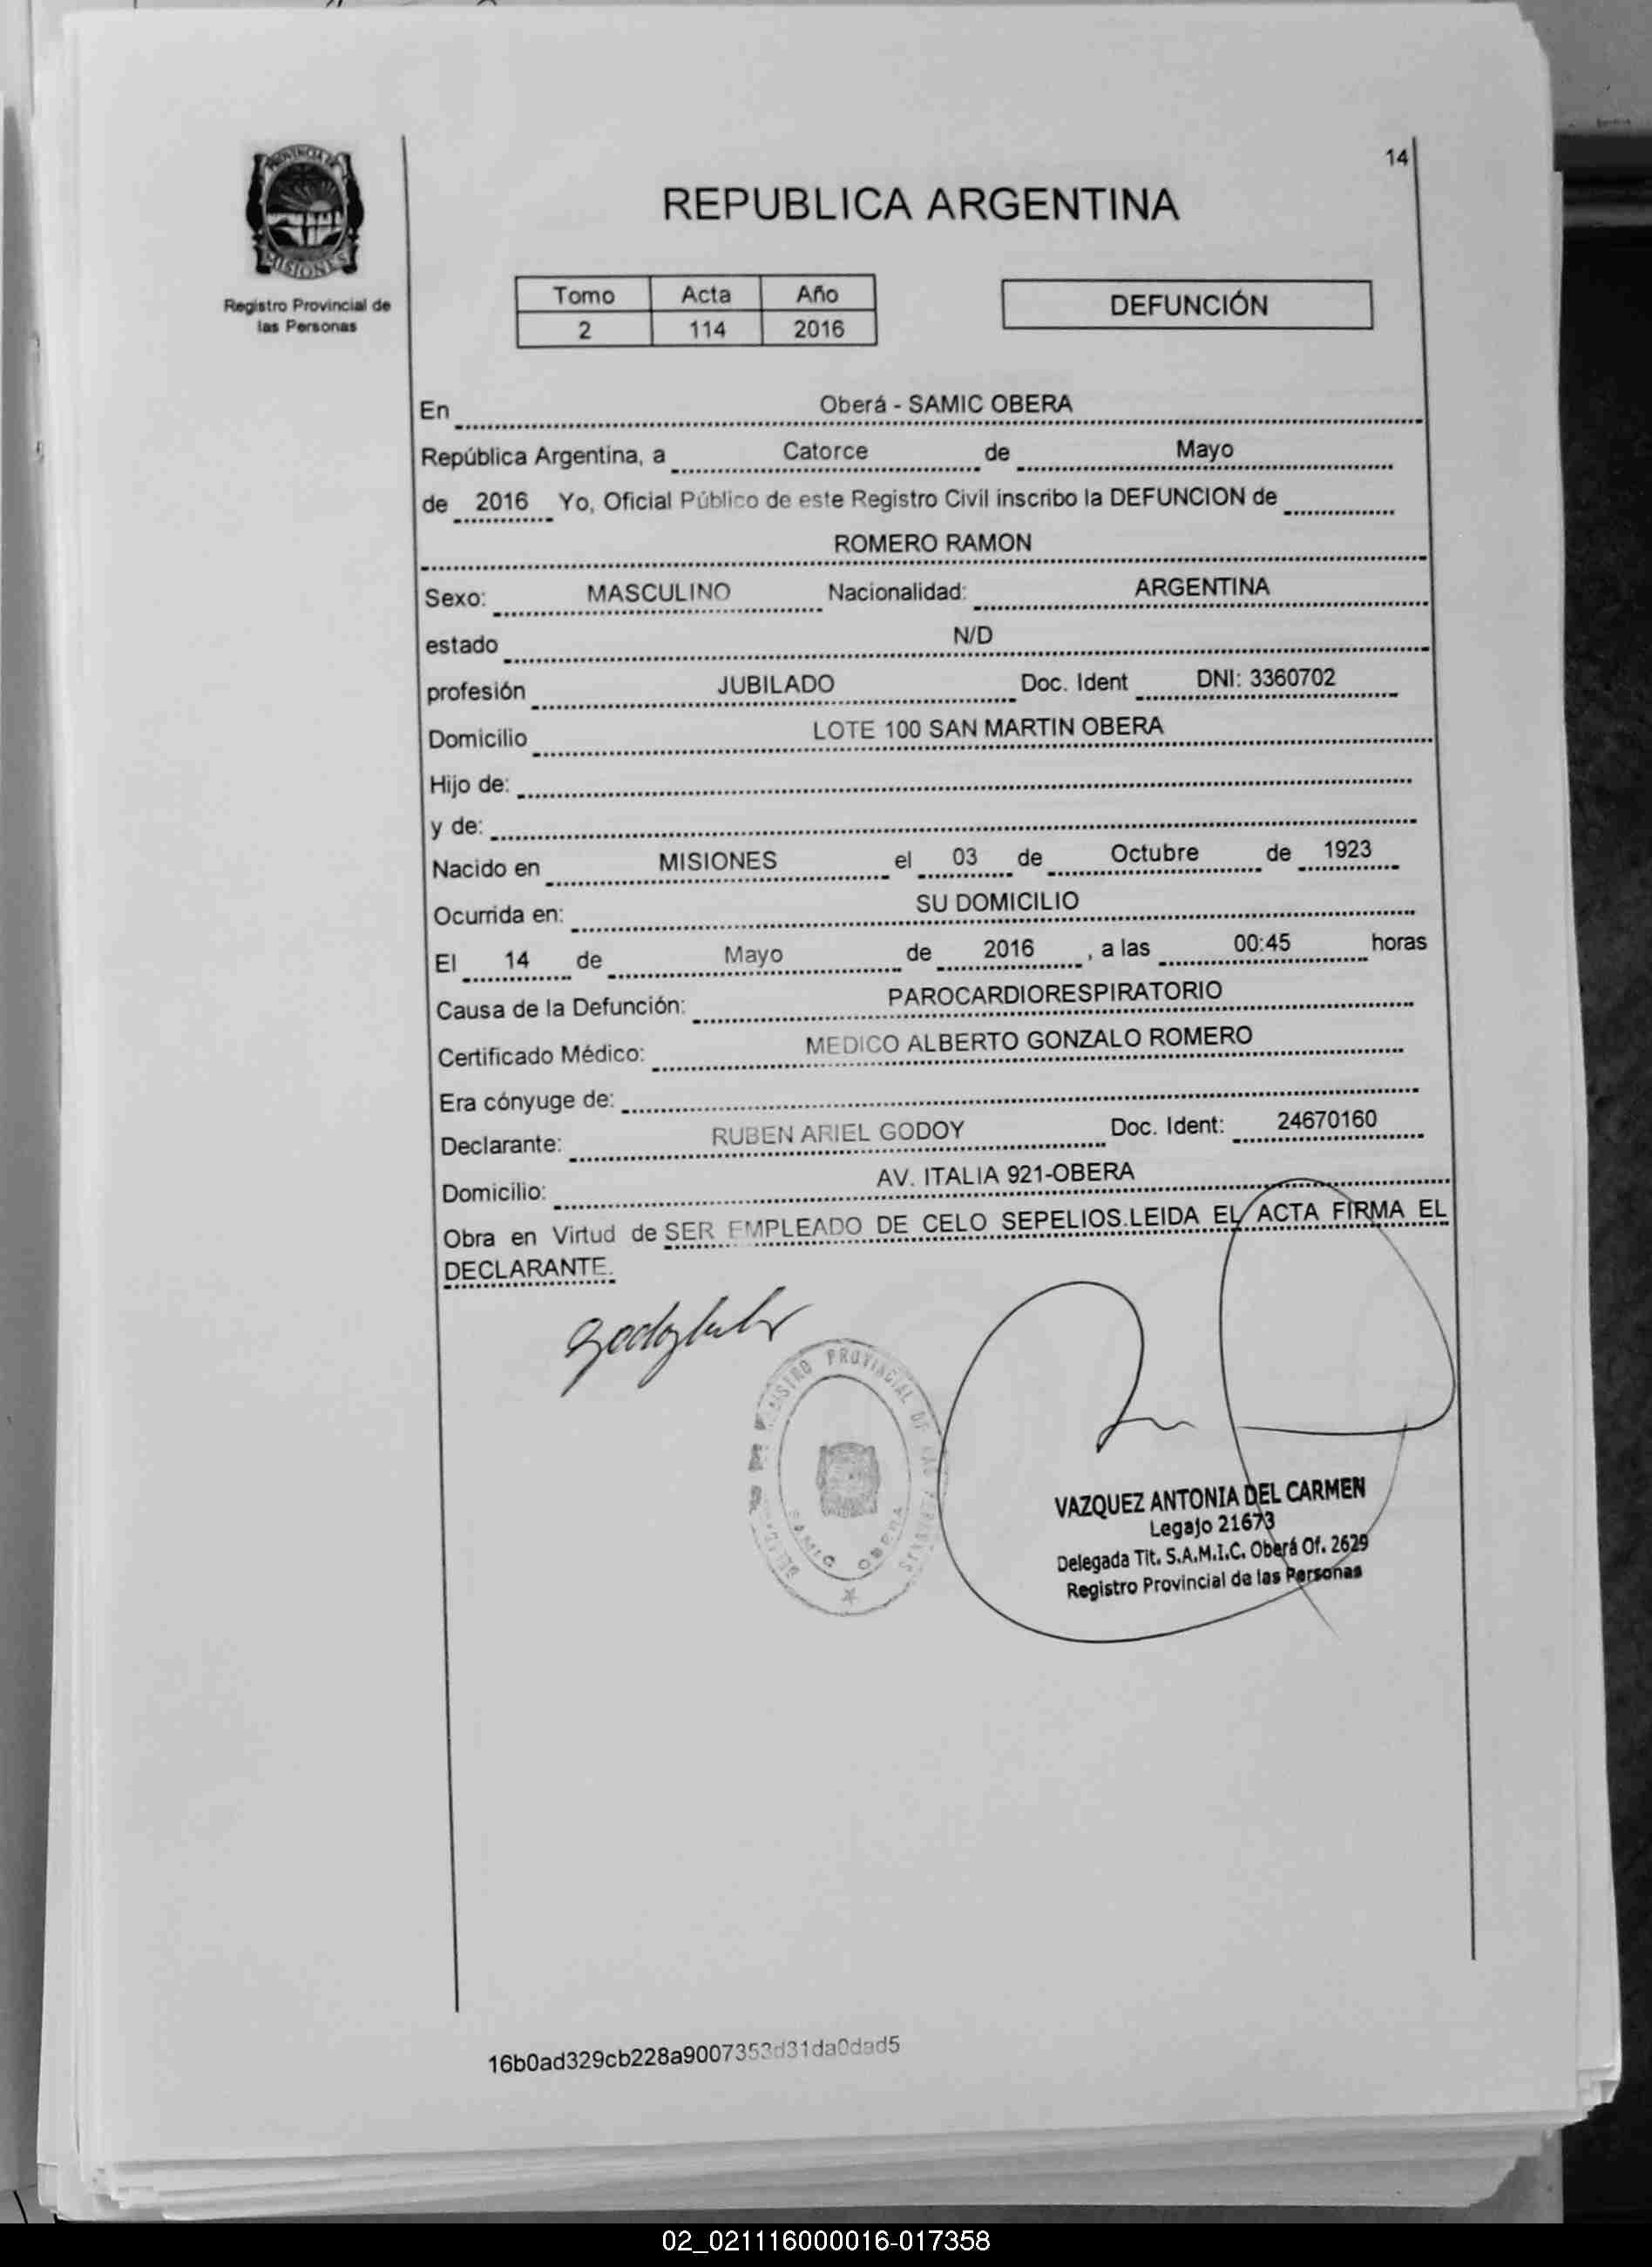 14
PROVINCIA DE
MISIONES
Registro Provincial de
las Personas
REPUBLICA ARGENTINA
Tomo Acta Año
2 114 2016
DEFUNCIÓN
En Oberá - SAMIC OBERA
República Argentina, a Catorce de Mayo
de 2016 Yo, Oficial Público de este Registro Civil inscribo la DEFUNCION de
ROMERO RAMON
Sexo: MASCULINO Nacionalidad: ARGENTINA
estado N/D
profesión JUBILADO Doc. Ident DNI: 3360702
Domicilio LOTE 100 SAN MARTIN OBERA
Hijo de:
y de:
Nacido en MISIONES el 03 de Octubre de 1923
Ocurrida en: SU DOMICILIO
El 14 de Mayo de 2016 , a las 00:45 horas
Causa de la Defunción: PAROCARDIORESPIRATORIO
Certificado Médico: MEDICO ALBERTO GONZALO ROMERO
Era cónyuge de:
Declarante: RUBEN ARIEL GODOY Doc. Ident: 24670160
Domicilio: AV. ITALIA 921-OBERA
Obra en Virtud de SER EMPLEADO DE CELO SEPELIOS.LEIDA EL ACTA FIRMA EL
DECLARANTE.
REGISTRO PROVINCIAL DE LAS PERSONAS
SAMIC OBERA
VAZQUEZ ANTONIA DEL CARMEN
Legajo 21673
Delegada Tit. S.A.M.I.C. Oberá Of. 2629
Registro Provincial de las Personas
16b0ad329cb228a9007353d31da0dad5
02_021116000016-017358